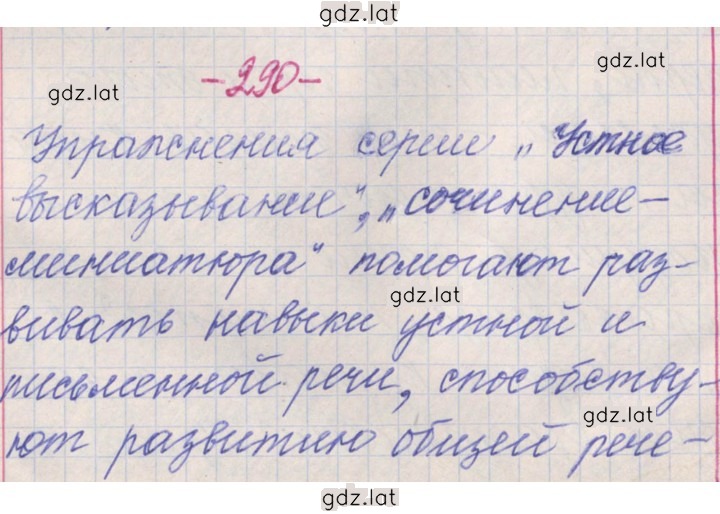 gdz.lat
-290-
gdz.lat
gdz.lat
Упражнения серии „Устное
высказывание", „сочинение-
миниатюра" помогают раз-
gdz.lat
вивать навыки устной и
письменной речи, способству-
gdz.lat
ют развитию общей рече-
gdz.lat